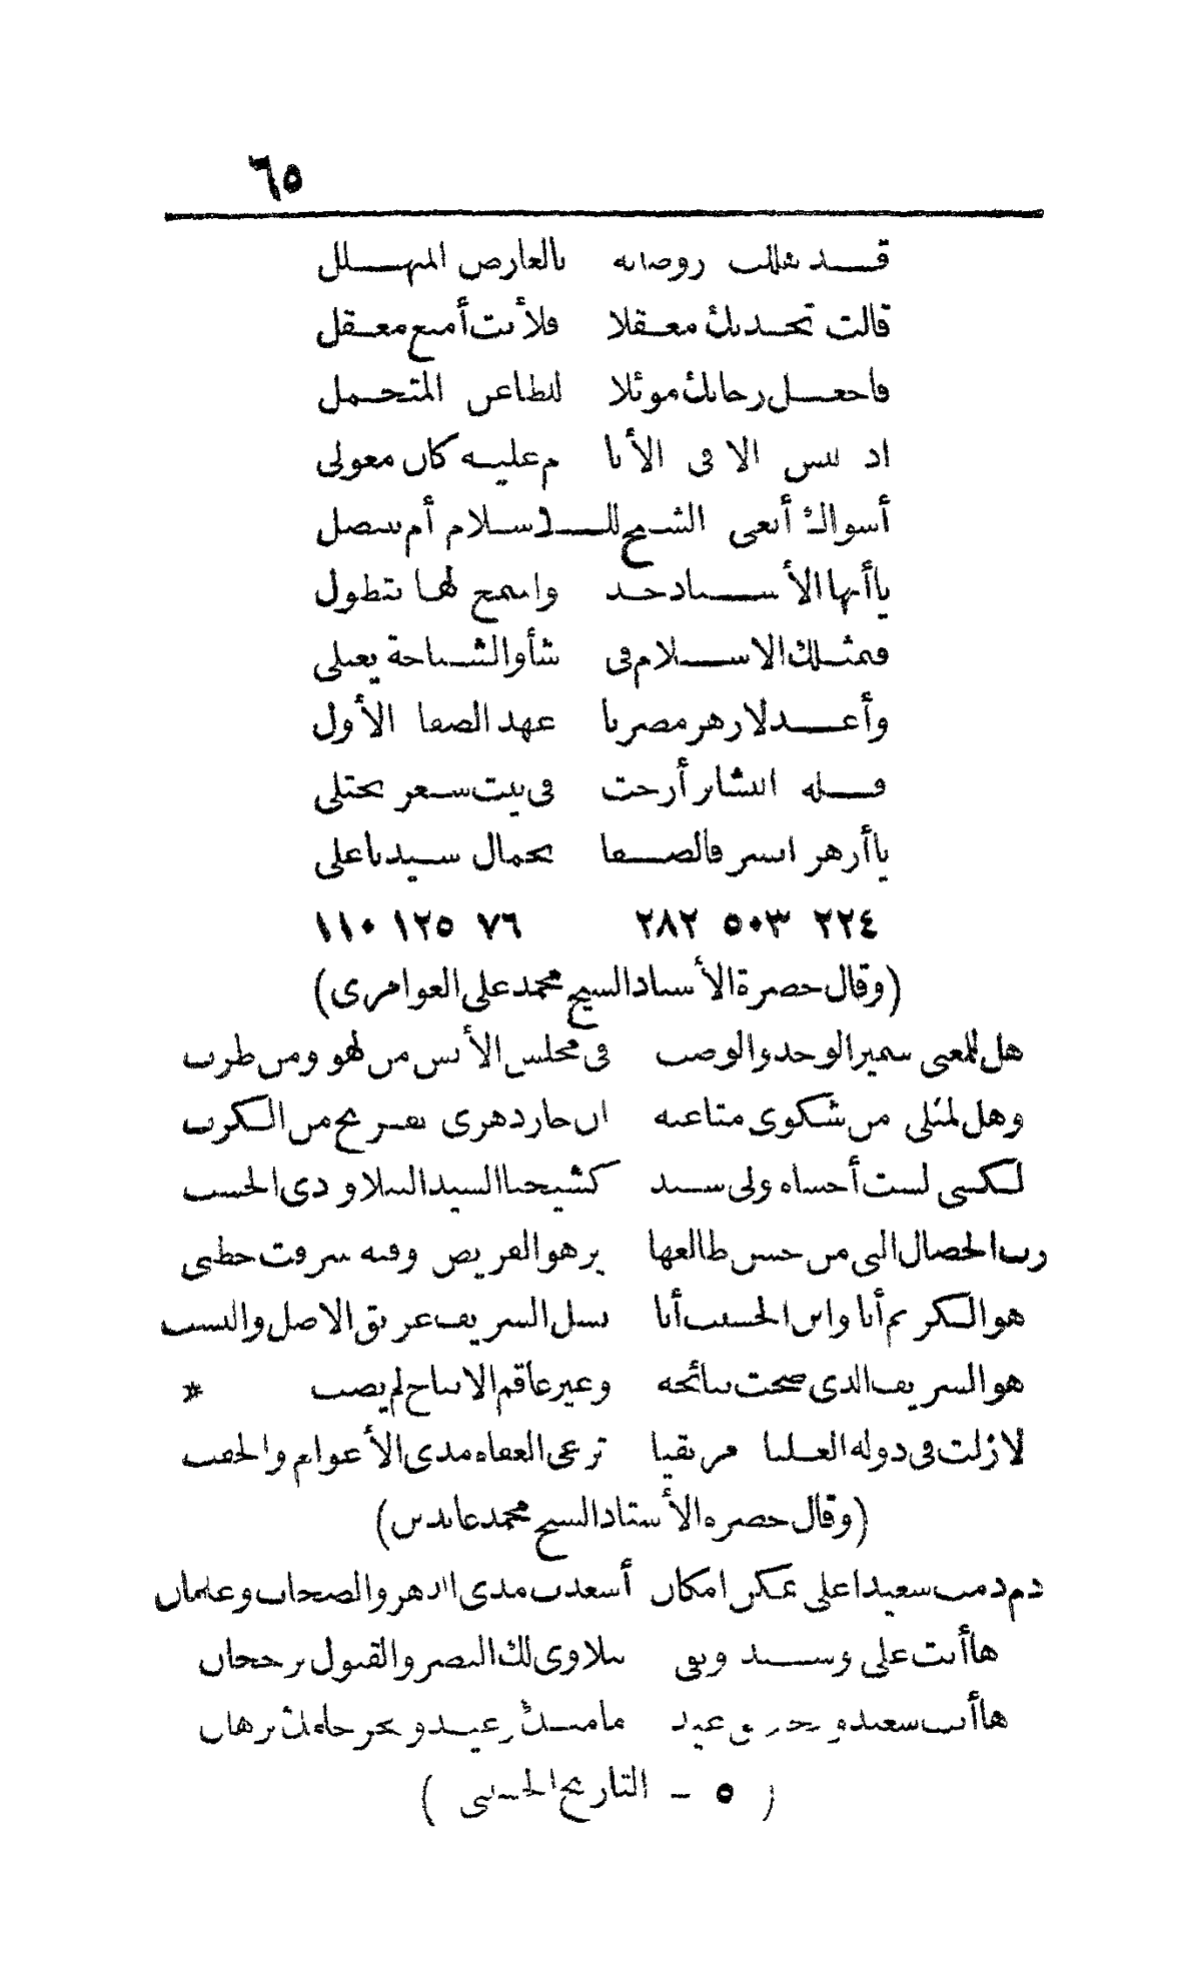 ٦٥
قد ظللت روضاته بالعارض المتهلل
قالت تخذتك معقلا فلأنت أمنع معقل
فاجعل رحابك موئلا للطاعن المتحمل
اذ ليس الا فى الأنا م عليه كان معولى
أسواك أبغى الشيخ للاسلام أم
ياأيها الأستاذ خذ واسمع لها بتطول
فمثلك الاسلام فى شأو يعتلى
وأعد لازهر مصرنا عهد الصفا الأول
فله البشائر أرخت فى بيت شعر يجتلى
ياأزهر ابشر فالصفا بجمال سيدنا على
٢٢٤ ٥٠٣ ٢٨٢ ٧٦ ١٢٥ ١١٠
(وقال حضرة الأستاذ الشيخ محمد على العوامرى)
هل للمعنى سمير الوجد والوصب فى مجلس الأنس من لهو ومن طرب
وهل لمثلى من شكوى متاعبه ان جار دهرى تفريج من الكرب
لكننى لست أخشاه ولى سند كشيخنا السيد الببلاوى ذى الحسب
رب الخصال التى من حسن طالعها يزهو القريض وفيه شرفت خطبى
هو الكريم أبا وابن الحسيب أبا نسل الشريف عريق الاصل والنسب
هو الشريف الذى صحت نتائجه وغير عاقم الانتاج لم يصب *
لازلت فى دولة العليا مرتقيا ترعى العفاة مدى الأعوام والحقب
(وقال حضرة الأستاذ الشيخ محمد عابدين)
دم دمت سعيدا على تمكن امكان أسعدت مدى الدهر والصحاب وعلمان
هاأنت على ببلاوى لك النصر والقبول برجحان
هاأنت سعيد
(٥ - التاريخ الحسينى)